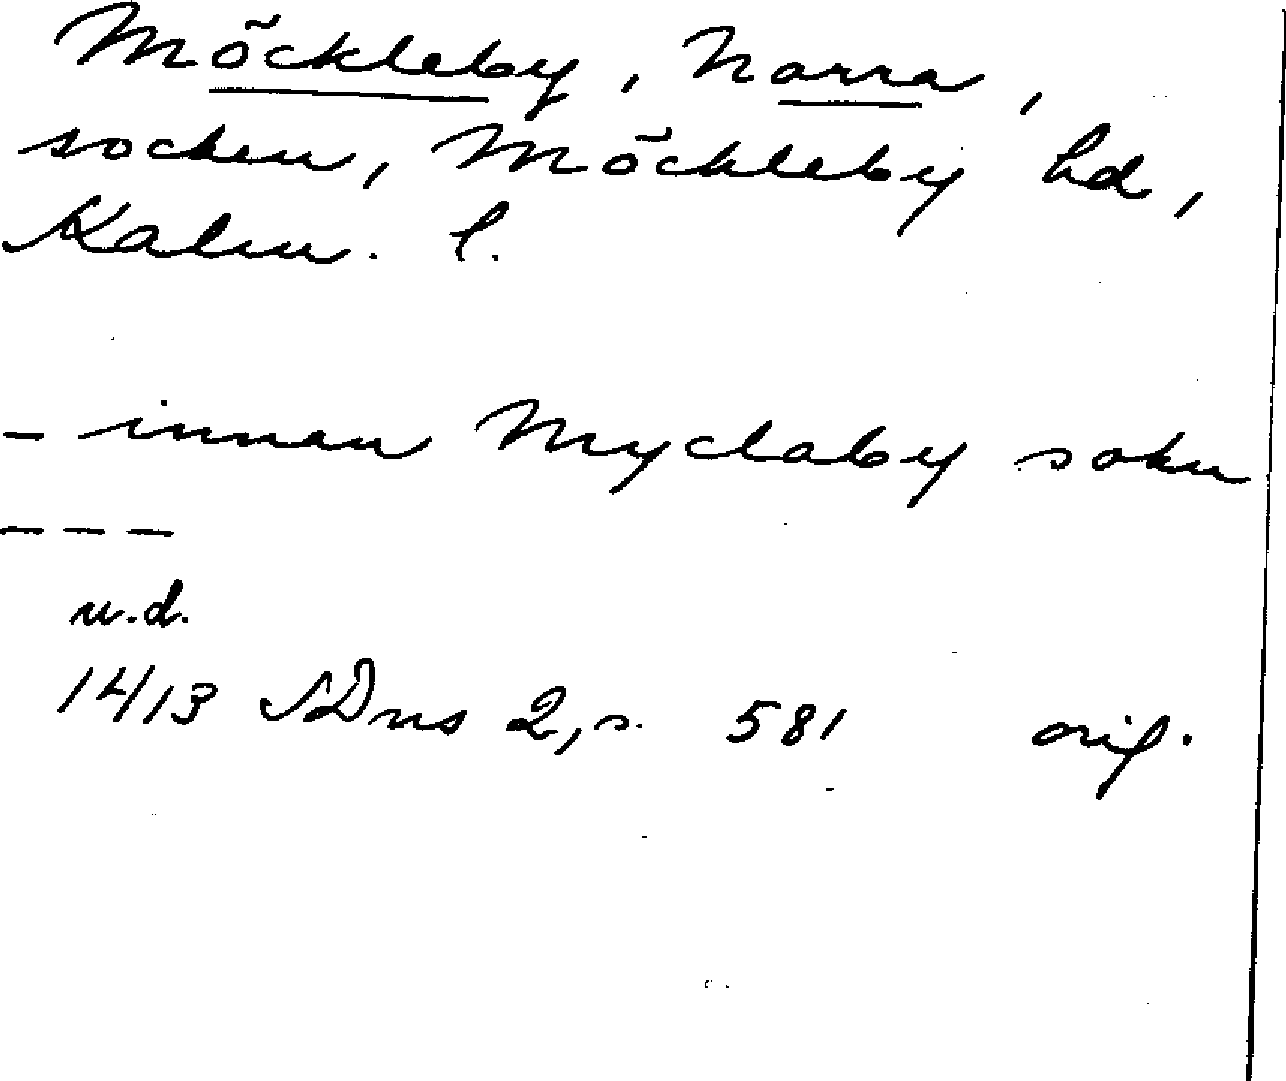 Möckleby, Norra,
socken, Möckleby hd,
Kalm. l.
- innan Myclaby sokn
---
u.d.
1413 SDns 2, s. 581 orig.